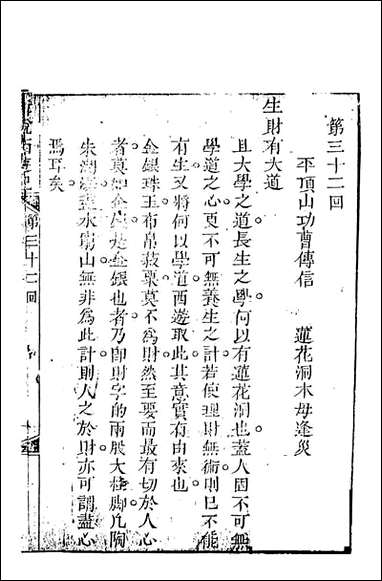 第三十二回
平頂山功曹傳信　蓮花洞木母逢災
生財有大道
且大學之道長生之學何以有蓮花洞也蓋人固不可無
學道之心更不可無養生之計若使理財無術則已不能
有生又將何以學道西遊取此其意實有由來也
金銀珠玉布帛菽粟莫不為財然至要而最有切於人心
者莫如金銀是金銀也者乃即財字的兩股大柱脚凡陶
朱湖海登水窮山無非為此計則人之於財亦可謂盡心
焉耳矣
第三十二回